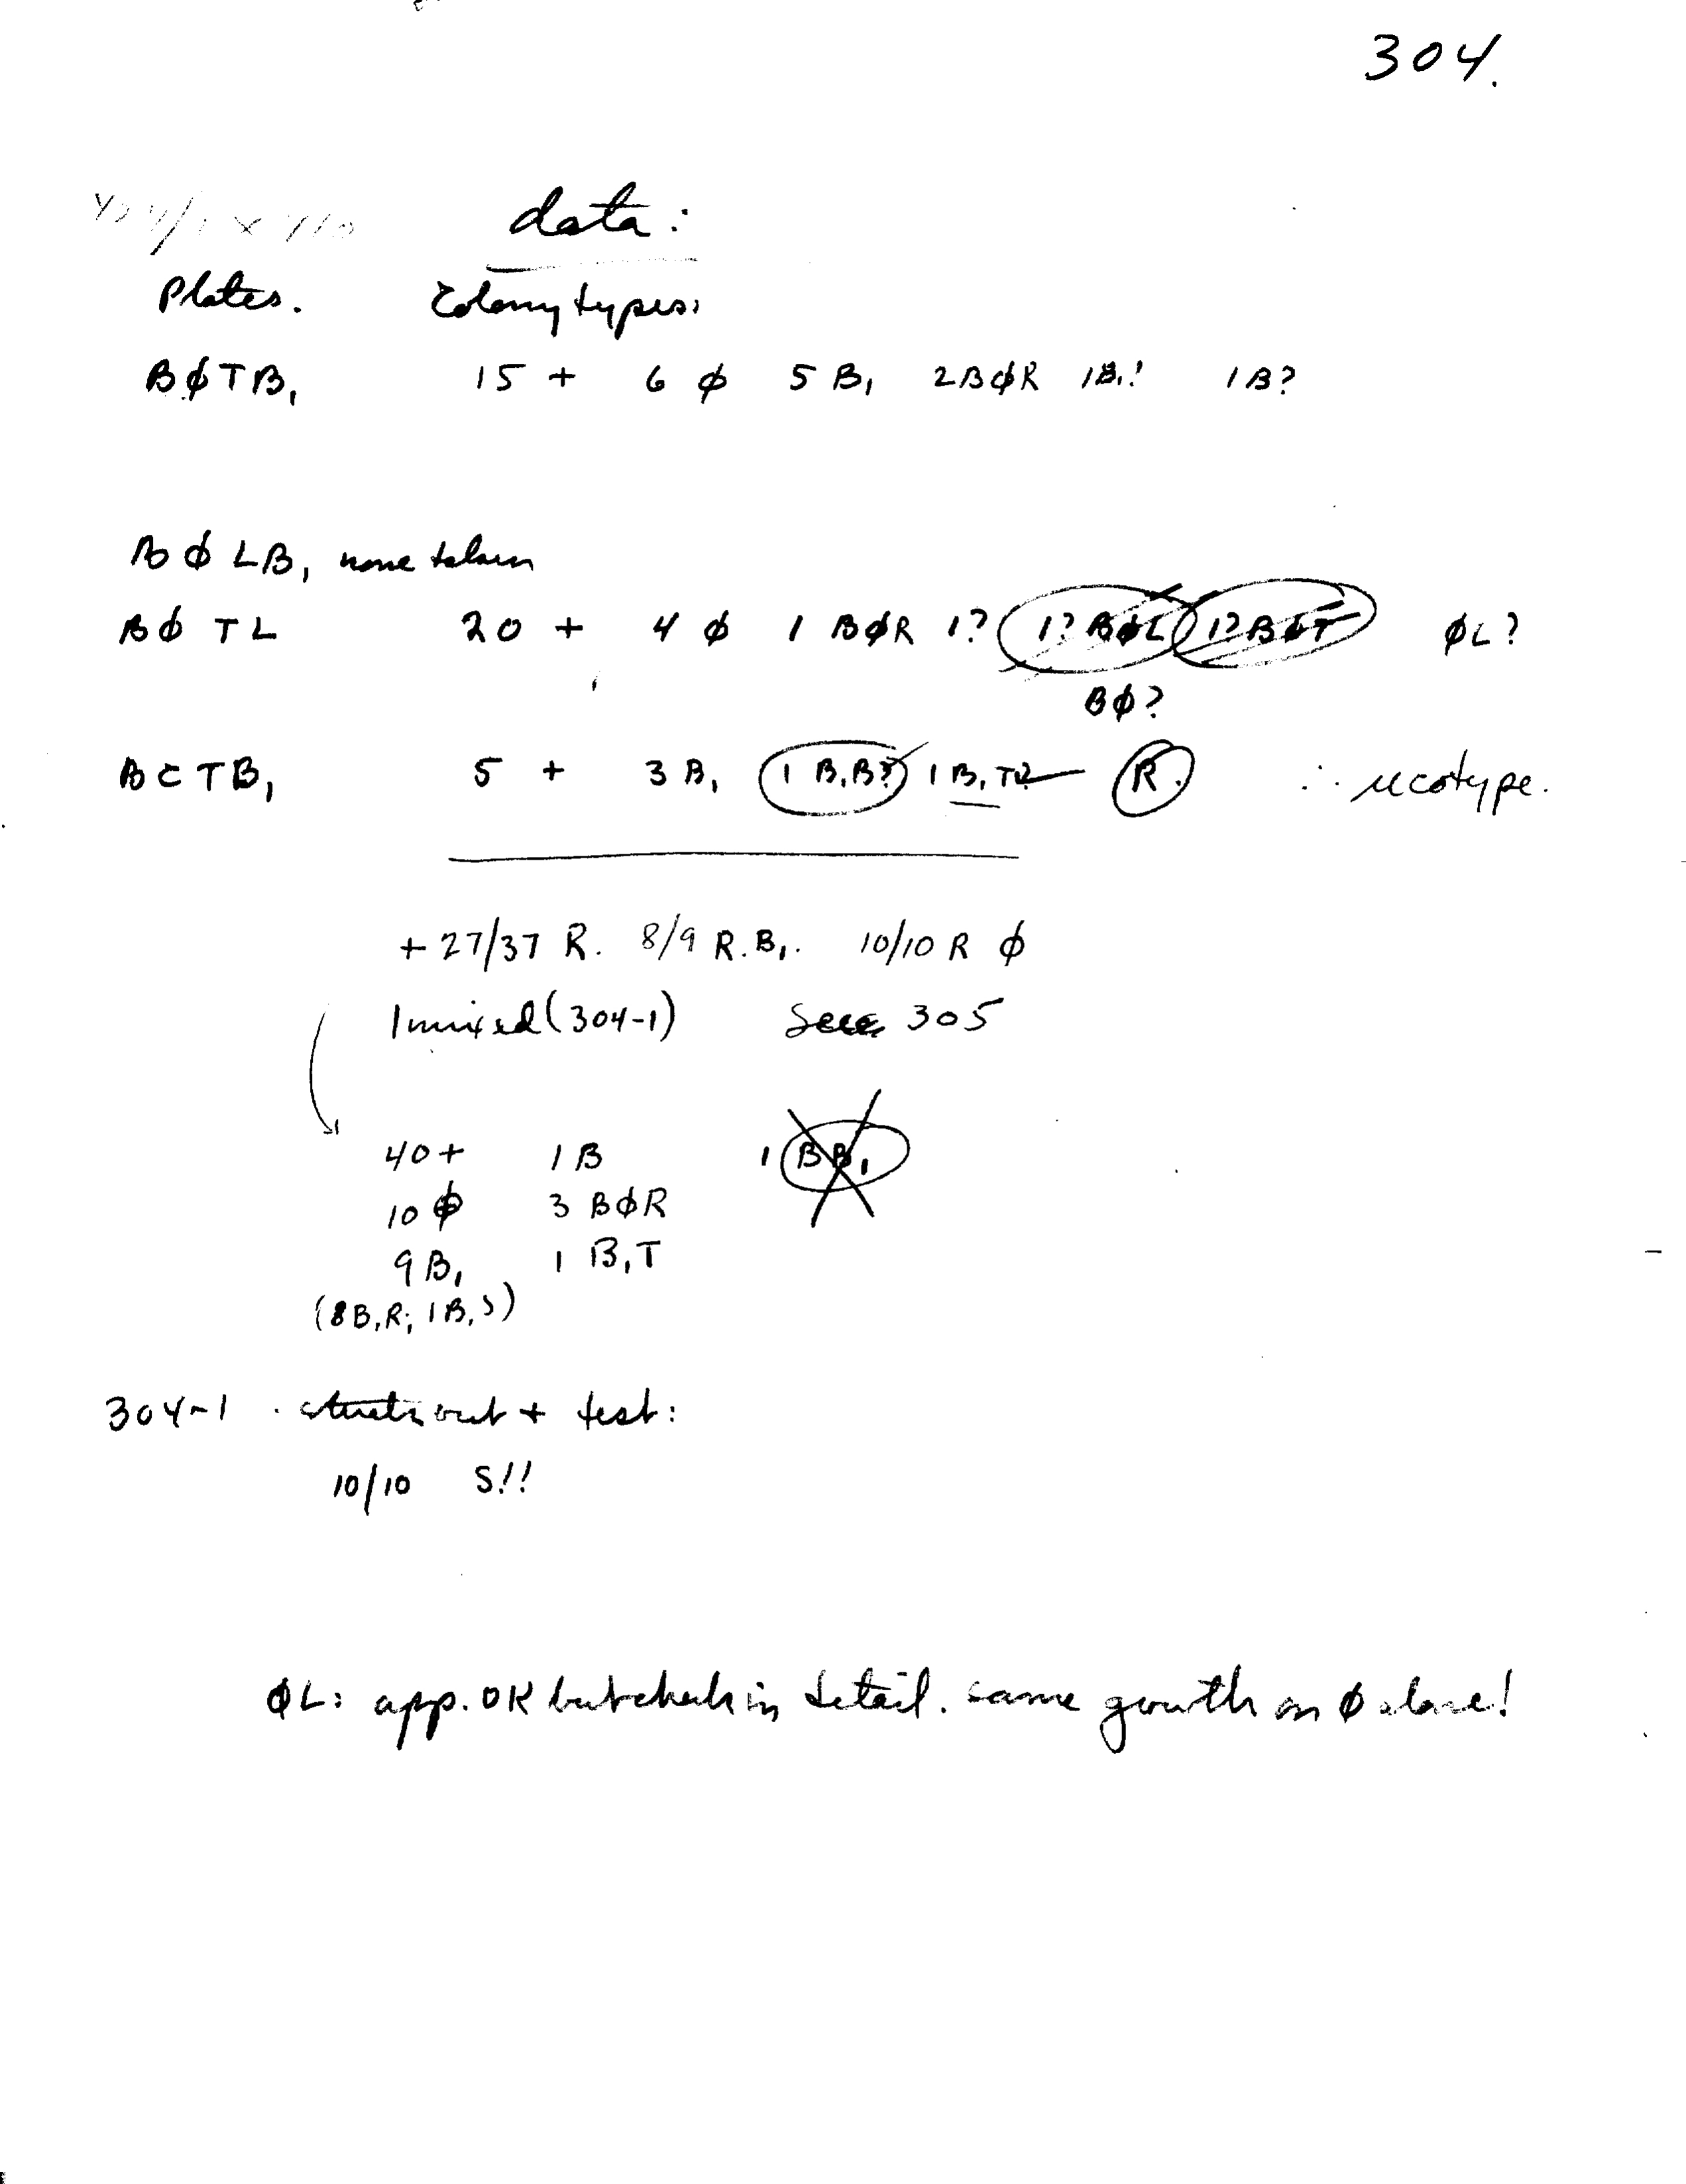 304.
data:
Plates. Colony types.
BφTB₁ 15 + 6 φ 5 B₁ 2BφR 1B₁! 1B?
BφLB₁ none taken
Bφ TL 20 + 4 φ 1 BφR 1? 1? BφL 1? BφT φL?
Bφ?
BCTB₁ 5 + 3 B₁ 1 B₁B? 1 B₁T R. ∴ ucotype.
+ 27/37 R. 8/9 R.B₁. 10/10 R φ
1 mixed (304-1) See 305
40+ 1 B 1 BB₁
10 φ 3 BφR
9 B₁ 1 B₁T
(8B₁R; 1B₁S)
304-1 out + test:
10/10 S!!
φL: app. OK but check in detail. same growth on φ alone!